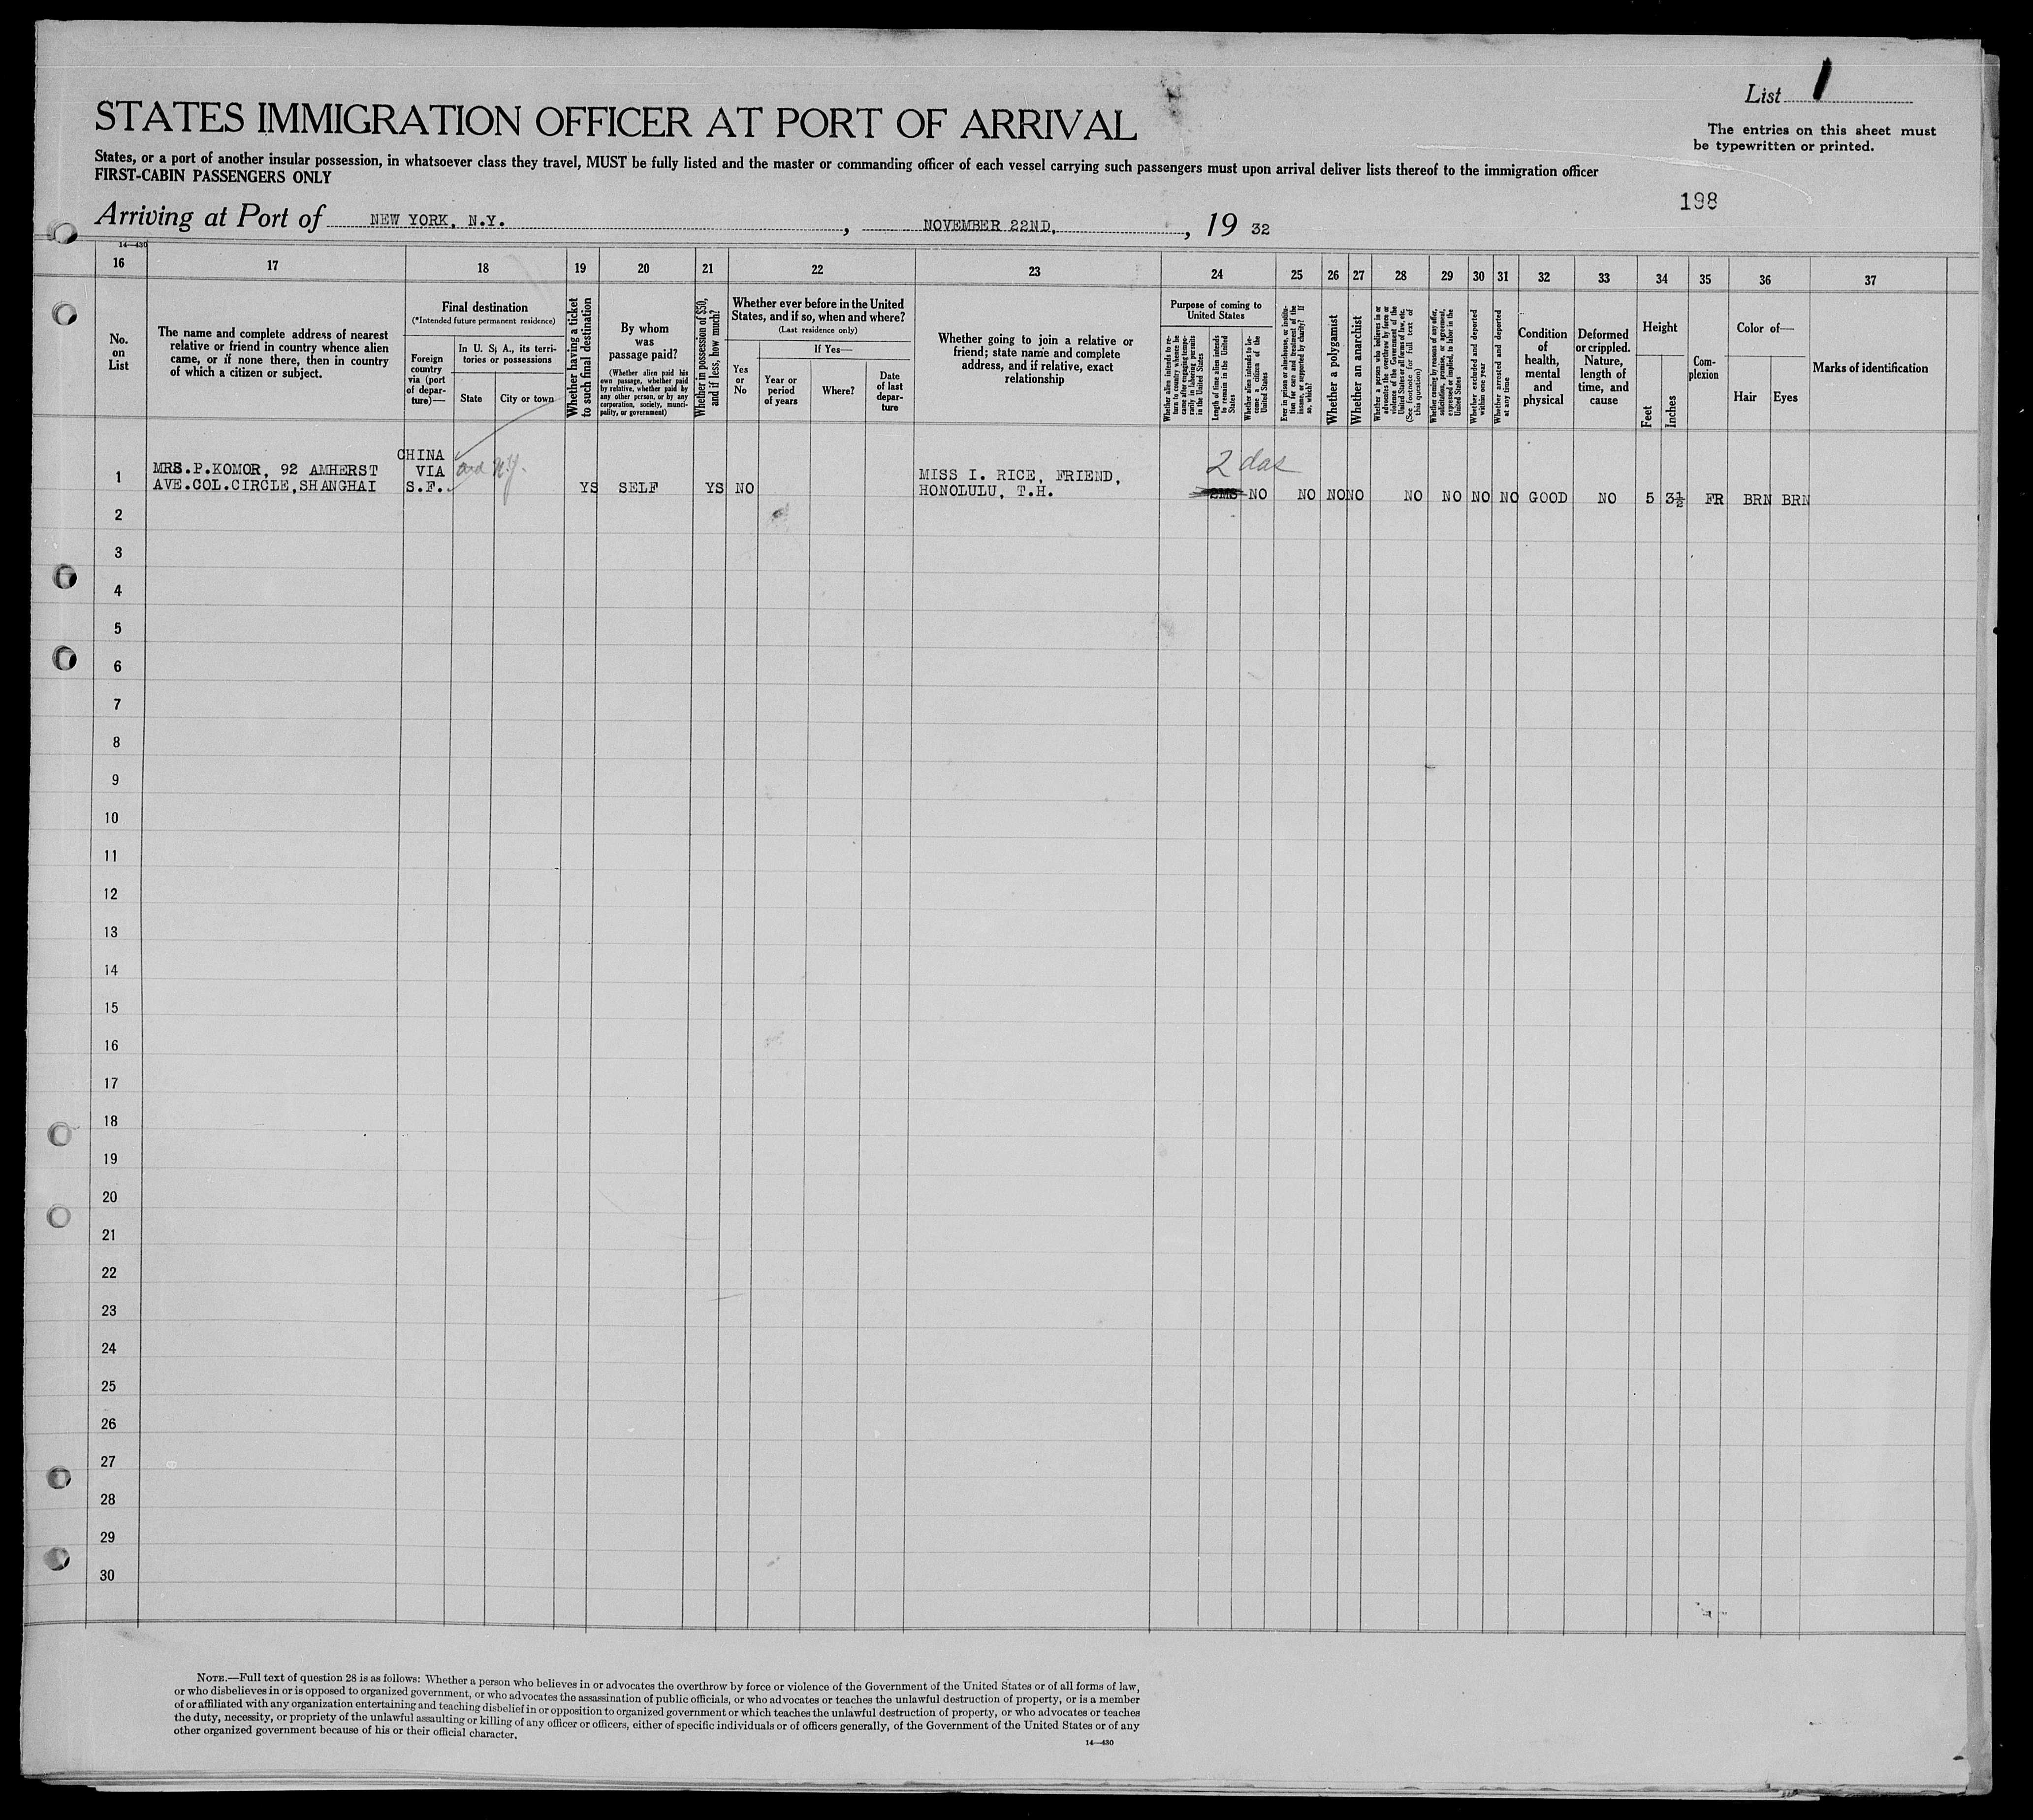 List 1
The entries on this sheet must
be typewritten or printed.
STATES IMMIGRATION OFFICER AT PORT OF ARRIVAL
States, or a port of another insular possession, in whatsoever class they travel, MUST be fully listed and the master or commanding officer of each vessel carrying such passengers must upon arrival deliver lists thereof to the immigration officer
FIRST-CABIN PASSENGERS ONLY
198
Arriving at Port of NEW YORK, N.Y. , NOVEMBER 22ND, , 19 32
14—430
16 17 18 19 20 21 22 23 24 25 26 27 28 29 30 31 32 33 34 35 36 37
No.
on
List
The name and complete address of nearest
relative or friend in country whence alien
came, or if none there, then in country
of which a citizen or subject.
Final destination
(*Intended future permanent residence)
Foreign
country
via (port
of depar-
ture)—
In U. S. A., its terri-
tories or possessions
State
City or town
Whether having a ticket
to such final destination
By whom
was
passage paid?
(Whether alien paid his
own passage, whether paid
by relative, whether paid by
any other person, or by any
corporation, society, munici-
pality, or government)
Whether in possession of $50,
and if less, how much?
Whether ever before in the United
States, and if so, when and where?
(Last residence only)
Yes
or
No
If Yes—
Year or
period
of years
Where?
Date
of last
depar-
ture
Whether going to join a relative or
friend; state name and complete
address, and if relative, exact
relationship
Purpose of coming to
United States
Whether alien intends to re-
turn to country whence he
came after engaging tempo-
rarily in laboring pursuits
in the United States
Length of time alien intends
to remain in the United
States
Whether alien intends to be-
come a citizen of the
United States
Ever in prison or almshouse, or institu-
tion for care and treatment of the
insane, or supported by charity? If
so, which?
Whether a polygamist
Whether an anarchist
Whether a person who believes in or
advocates the overthrow by force or
violence of the Government of the
United States or all forms of law, etc.
(See footnote for full text of
this question)
Whether coming by reasons of any offer,
solicitation, promise, or agreement,
expressed or implied, to labor in the
United States
Whether excluded and deported
within one year
Whether arrested and deported
at any time
Condition
of
health,
mental
and
physical
Deformed
or crippled.
Nature,
length of
time, and
cause
Height
Feet
Inches
Com-
plexion
Color of—
Hair
Eyes
Marks of identification
CHINA
1 MRS.P.KOMOR, 92 AMHERST VIA N.Y. MISS I. RICE, FRIEND, 2 das
AVE.COL.CIRCLE,SHANGHAI S.F. YS SELF YS NO HONOLULU, T.H. NO NO NO NO NO NO NO NO GOOD NO 5 3½ FR BRN BRN
2
3
4
5
6
7
8
9
10
11
12
13
14
15
16
17
18
19
20
21
22
23
24
25
26
27
28
29
30
NOTE.—Full text of question 28 is as follows: Whether a person who believes in or advocates the overthrow by force or violence of the Government of the United States or of all forms of law,
or who disbelieves in or is opposed to organized government, or who advocates the assassination of public officials, or who advocates or teaches the unlawful destruction of property, or is a member
of or affiliated with any organization entertaining and teaching disbelief in or opposition to organized government or which teaches the unlawful destruction of property, or who advocates or teaches
the duty, necessity, or propriety of the unlawful assaulting or killing of any officer or officers, either of specific individuals or of officers generally, of the Government of the United States or of any
other organized government because of his or their official character.
14—430